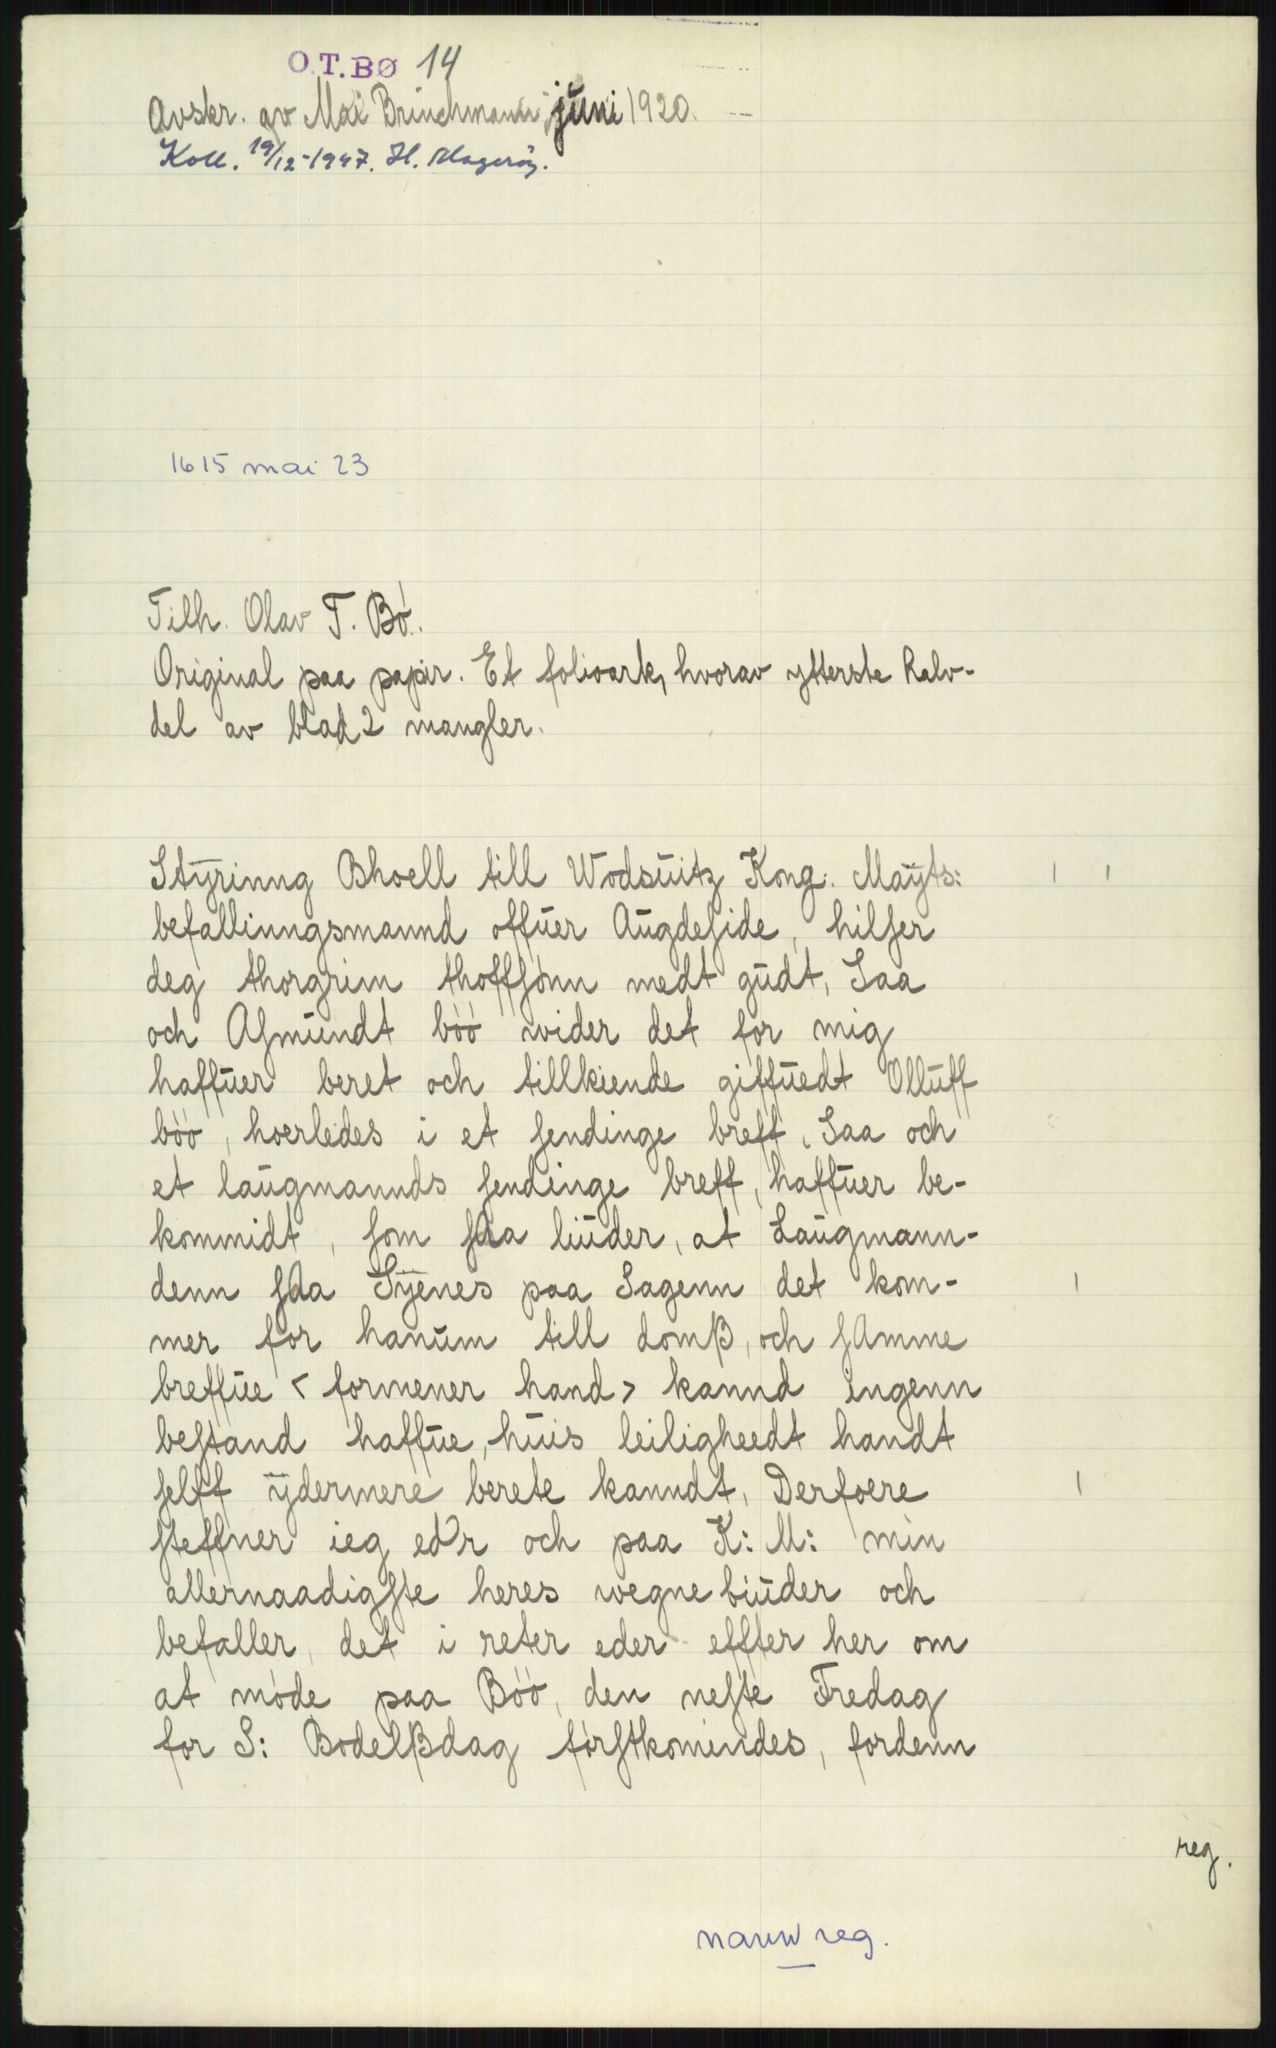 O.T.BØ 14
Avskr. av Mai Brinchmann juni 1920.
Koll. 19/12-1947. H. Magerøy.
1615 mai 23
Tilh. Olav T. Bø.
Original paa papir. Et folioark, hvorav ytterste halv-
del av blad 2 mangler.
Stÿrinng Bhoell till Wodsuitz Kong. Maÿts:
befallinngsmannd offuer Augdeſide, hilſer
deg thorgrim thoffſønn medt gudt, Saa
och Aſmundt böö wider det for mig
haffuer beret och tillkiende giffuedt Olluff
böö, hoerledes i et ſendinge breff, Saa och
et laugmannds ſendinge breff, haffuer be-
kommidt, ſom ſAa liuder, at Laugmann-
denn ſAa Sÿenes paa Sagenn det kom-
mer for hanum till domß, och ſAmme
breffue < formener hand > kannd ingenn
beſtand haffue, huis leiligheedt handt
ſelff ÿdermere berete kanndt, Derfoere
ſteffner ieg eder och paa K: M: min
allernaadigſte heres wegne biuder och
befaller, det i reter eder effter her om
at møde paa Böö, den neſte Fredag
for S: Bodelßdag førſtkomindes, fordenn
reg.
navn reg.